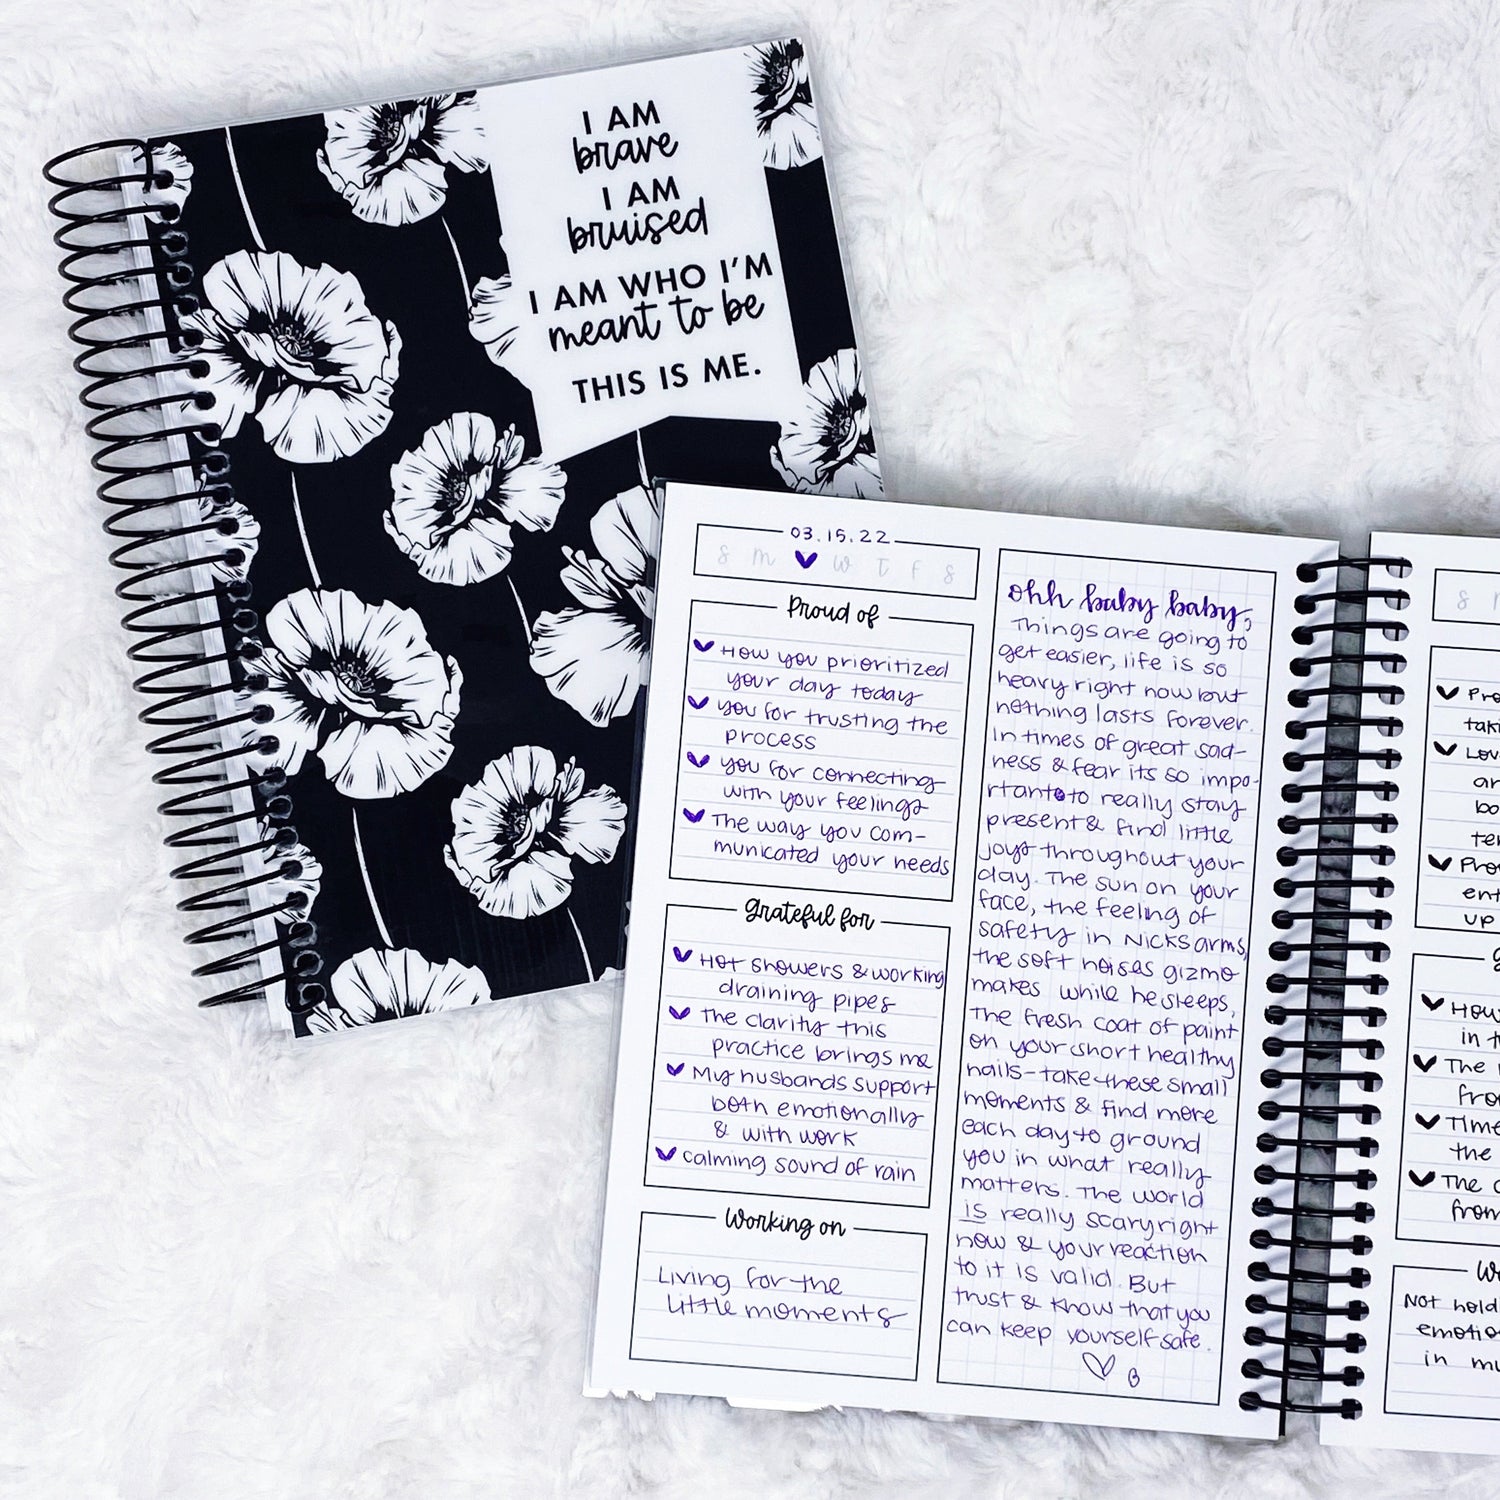 I AM
brave
I AM
bruised
I AM WHO I'M
meant to be
THIS IS ME.
03.15.22
s m w t f s
Proud of
How you prioritized
your day today
you for trusting the
process
you for connecting
with your feelings
The way you com-
municated your needs
Grateful for
Hot showers & working
draining pipes
the clarity this
practice brings me
My husbands support
both emotionally
& with work
calming sound of rain
Working on
Living for the
little moments
ohh baby baby,
Things are going to
get easier, life is so
heavy right now but
nothing lasts forever.
In times of great sad-
ness & fear its so impo-
rtant to really stay
present & find little
joys throughout your
day. The sun on your
face, the feeling of
safety in Nicks arms,
the soft noises gizmo
makes while he sleeps,
The fresh coat of paint
on your short healthy
nails - take these small
moments & find more
each day to ground
you in what really
matters. The world
is really scary right
now & your reaction
to it is valid. But
trust & know that you
can keep yourself safe.
B
s
Pro
tak
Lov
an
bo
ter
Prov
ent
up
G
How
in t
The
fro
Time
the
The c
from
Wo
Not hold
emotio
in mu